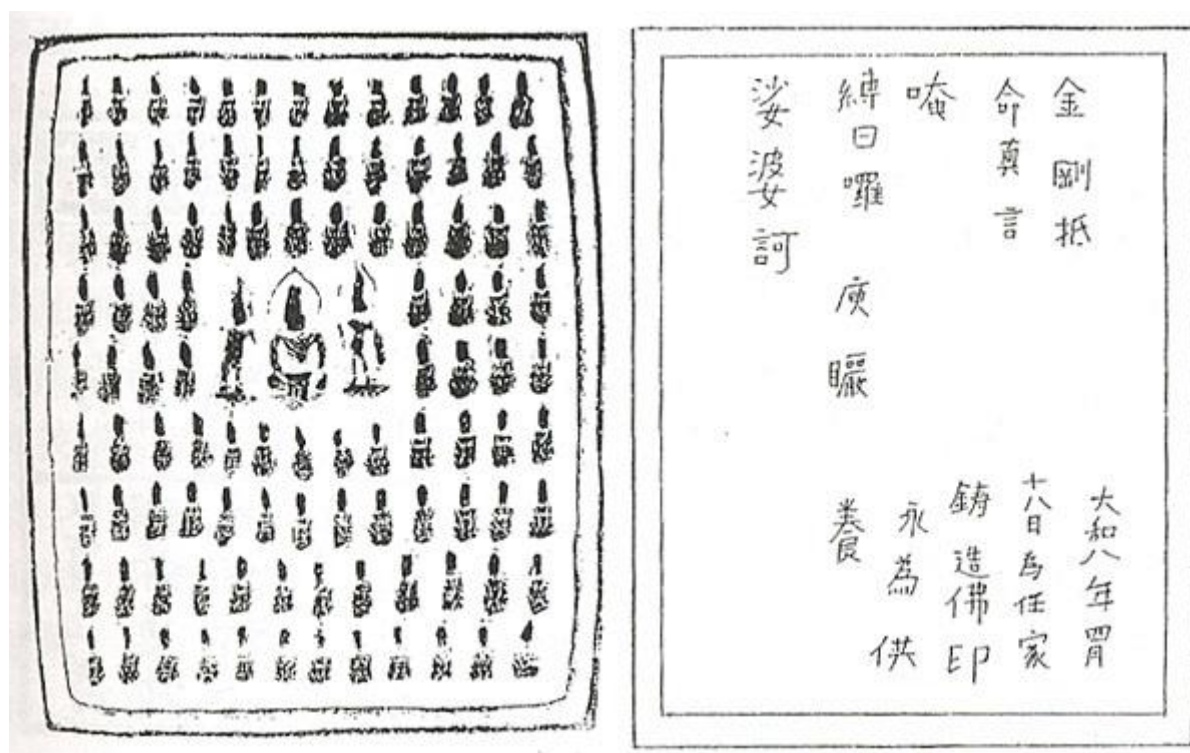 金剛抵
命真言
唵
縛日囉庾矖
娑婆訶
大和八年四月
十八日為任家
鋳造佛印
永為供
養